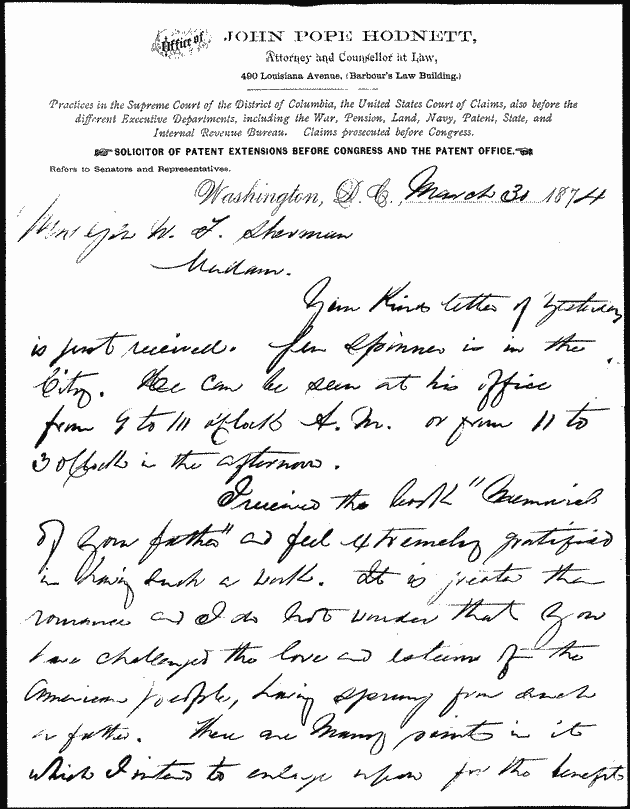 Office of JOHN POPE HODNETT,
Attorney and Counsellor at Law,
490 Louisiana Avenue, (Barbour's Law Building.)
Practices in the Supreme Court of the District of Columbia, the United States Court of Claims, also before the
different Executive Departments, including the War, Pension, Land, Navy, Patent, State, and
Internal Revenue Bureau. Claims prosecuted before Congress.
SOLICITOR OF PATENT EXTENSIONS BEFORE CONGRESS AND THE PATENT OFFICE.
Refers to Senators and Representatives.
Washington, D. C., March 31 1874
W. T. Sherman
Madam.
Your Kind letter of yesterday
is just received. Gen Spinner is in the
City. He can be seen at his office
from 9 to 11 o'Clock A. M. or from 11 to
3 oClock in the afternoon.
I received the book "Memorials
of your father" and feel extremely gratified
in having such a work. It is greater than
romance and I do not wonder that you
have challenged the love and esteem of the
American people, having sprung from such
a father. There are many points in it
which I intend to enlarge upon for the benefit